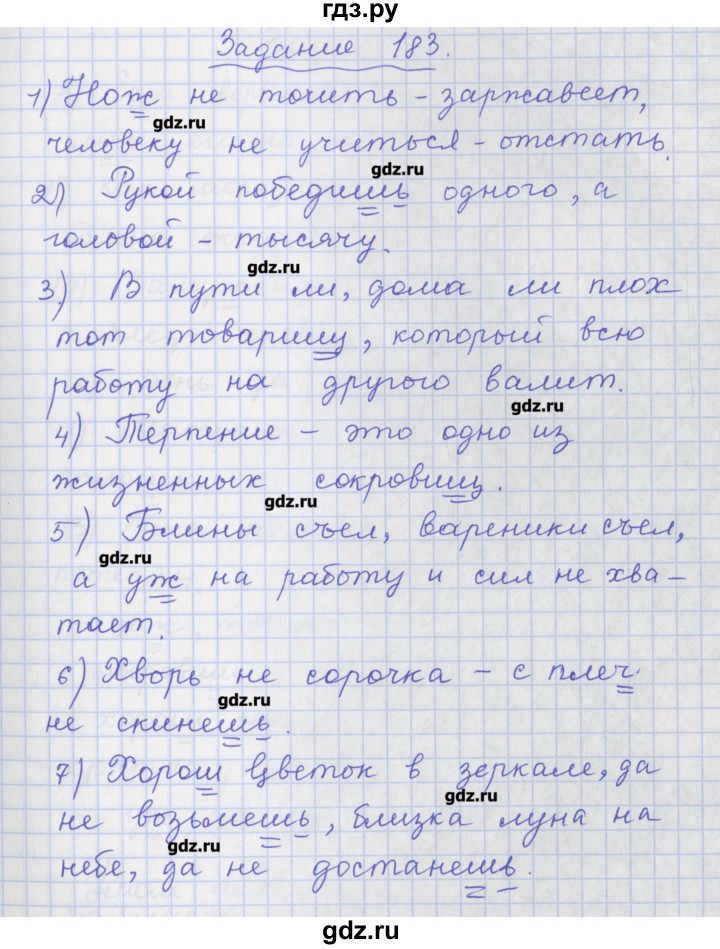 гдз.ру
Задание 183.
1) Нож не точить – заржавеет,
gdz.ru
человеку не учиться – отстать.
gdz.ru
2) Рукой победишь одного, а
головой – тысячу.
gdz.ru
3) В пути ли, дома ли плох
тот товарищ, который всю
работу на другого валит.
gdz.ru
4) Терпение – это одно из
жизненных сокровищ.
gdz.ru
5) Блины съел, вареники съел,
gdz.ru
а уж на работу и сил не хва-
тает.
6) Хворь не сорочка – с плеч
gdz.ru
не скинешь.
7) Хорош цветок в зеркале, да
gdz.ru
не возьмешь, близка луна на
gdz.ru
небе, да не достанешь.
gdz.ru